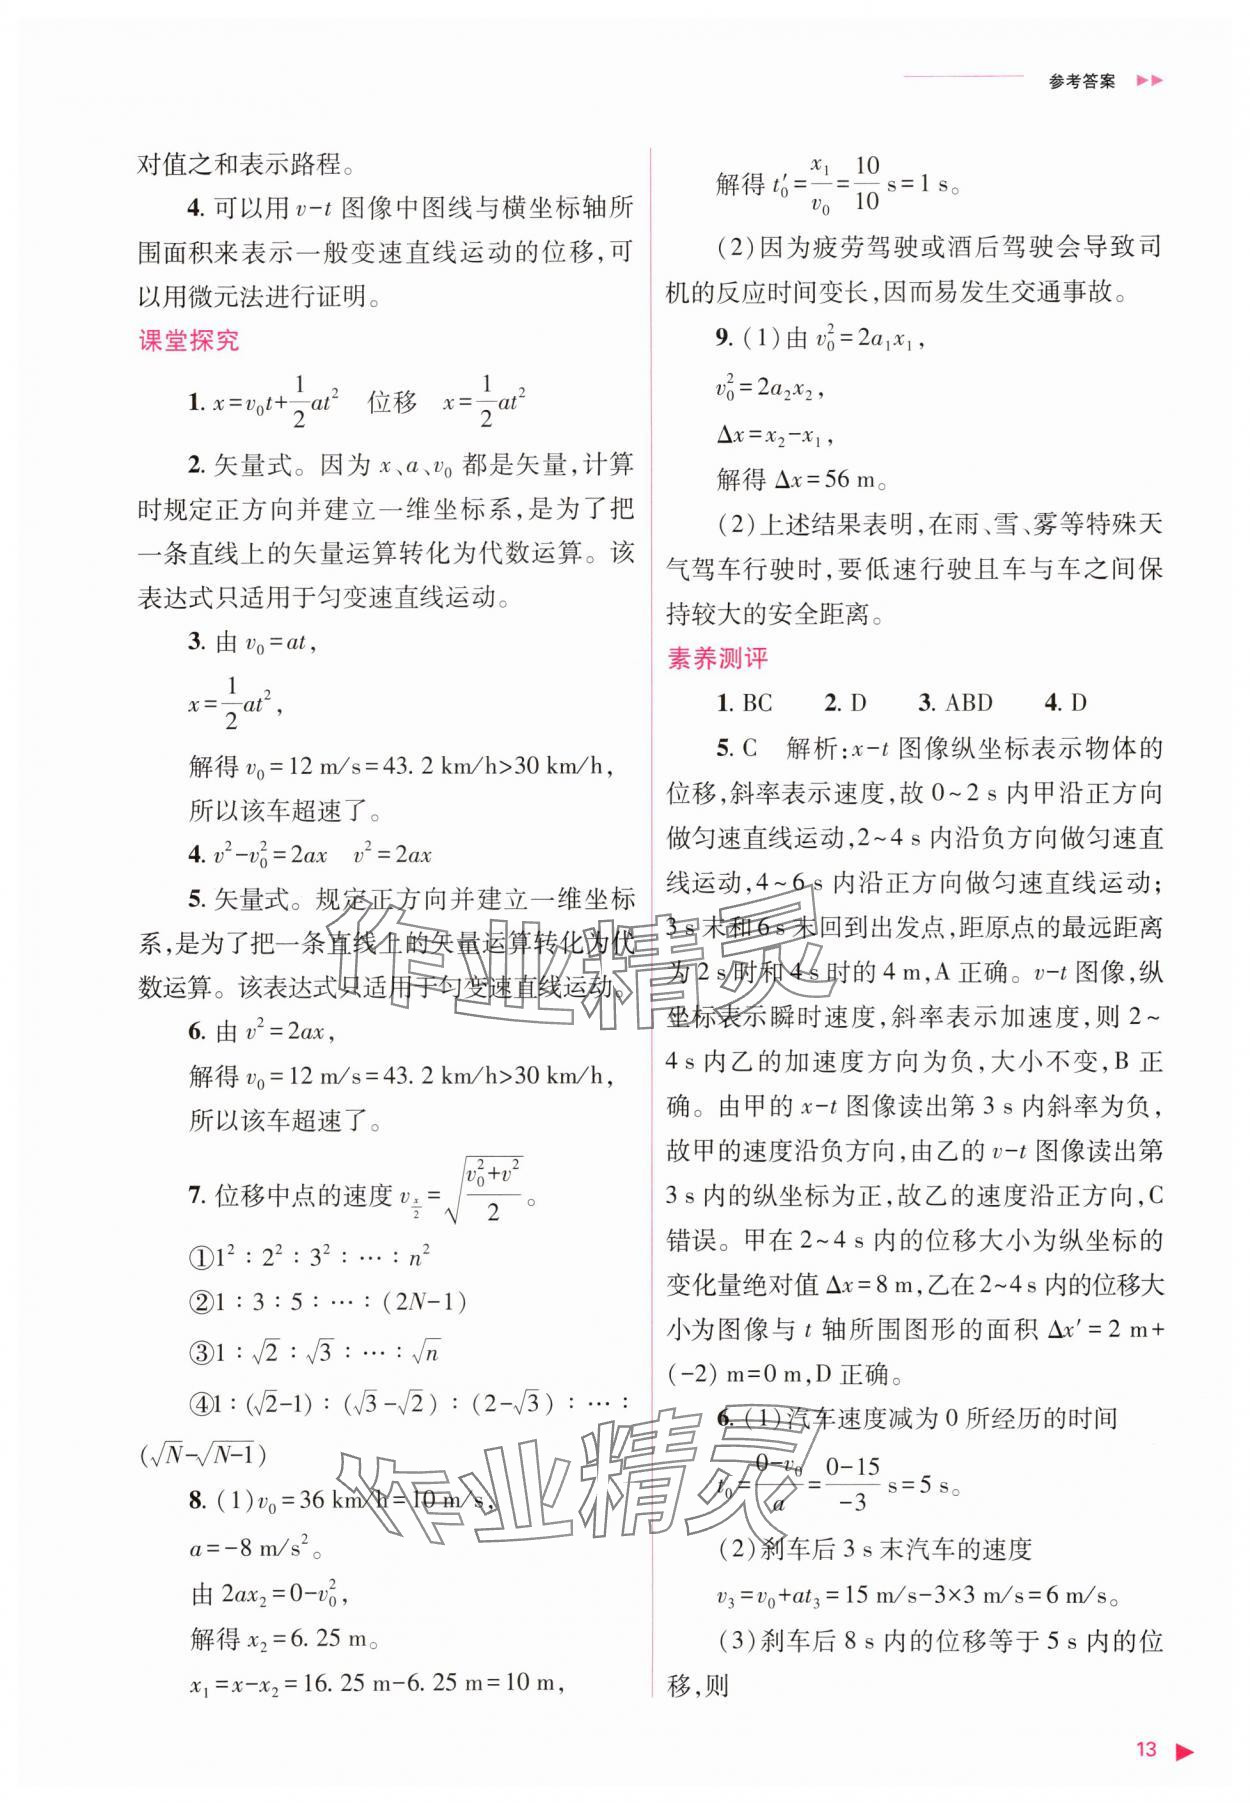 参考答案
对值之和表示路程。
4. 可以用 v-t 图像中图线与横坐标轴所
围面积来表示一般变速直线运动的位移,可
以用微元法进行证明。
课堂探究
1. x=v₀t+\frac{1}{2}at²  位移  x=\frac{1}{2}at²
2. 矢量式。因为 x、a、v₀ 都是矢量,计算
时规定正方向并建立一维坐标系,是为了把
一条直线上的矢量运算转化为代数运算。该
表达式只适用于匀变速直线运动。
3. 由 v₀=at,
x=\frac{1}{2}at²,
解得 v₀=12 m/s=43.2 km/h>30 km/h,
所以该车超速了。
4. v²-v₀²=2ax  v²=2ax
5. 矢量式。规定正方向并建立一维坐标
系,是为了把一条直线上的矢量运算转化为代
数运算。该表达式只适用于匀变速直线运动。
6. 由 v²=2ax,
解得 v₀=12 m/s=43.2 km/h>30 km/h,
所以该车超速了。
7. 位移中点的速度 v_{\frac{x}{2}}=\sqrt{\frac{v₀²+v²}{2}}。
①1²∶2²∶3²∶…∶n²
②1∶3∶5∶…∶(2N-1)
③1∶√2∶√3∶…∶√n
④1∶(√2-1)∶(√3-√2)∶(2-√3)∶…∶
(√N-√(N-1))
8. (1)v₀=36 km/h=10 m/s,
a=-8 m/s²。
由 2ax₂=0-v₀²,
解得 x₂=6.25 m。
x₁=x-x₂=16.25 m-6.25 m=10 m,
解得 t₀′=\frac{x₁}{v₀}=\frac{10}{10} s=1 s。
(2)因为疲劳驾驶或酒后驾驶会导致司
机的反应时间变长,因而易发生交通事故。
9. (1)由 v₀²=2a₁x₁,
v₀²=2a₂x₂,
Δx=x₂-x₁,
解得 Δx=56 m。
(2)上述结果表明,在雨、雪、雾等特殊天
气驾车行驶时,要低速行驶且车与车之间保
持较大的安全距离。
素养测评
1. BC  2. D  3. ABD  4. D
5. C  解析:x-t 图像纵坐标表示物体的
位移,斜率表示速度,故 0~2 s 内甲沿正方向
做匀速直线运动,2~4 s 内沿负方向做匀速直
线运动,4~6 s 内沿正方向做匀速直线运动;
3 s 末和 6 s 末回到出发点,距原点的最远距离
为 2 s 时和 4 s 时的 4 m,A 正确。v-t 图像,纵
坐标表示瞬时速度,斜率表示加速度,则 2~
4 s 内乙的加速度方向为负,大小不变,B 正
确。由甲的 x-t 图像读出第 3 s 内斜率为负,
故甲的速度沿负方向,由乙的 v-t 图像读出第
3 s 内的纵坐标为正,故乙的速度沿正方向,C
错误。甲在 2~4 s 内的位移大小为纵坐标的
变化量绝对值 Δx=8 m,乙在 2~4 s 内的位移大
小为图像与 t 轴所围图形的面积 Δx′=2 m+
(-2) m=0 m,D 正确。
6. (1)汽车速度减为 0 所经历的时间
t₀=\frac{0-v₀}{a}=\frac{0-15}{-3} s=5 s。
(2)刹车后 3 s 末汽车的速度
v₃=v₀+at₃=15 m/s-3×3 m/s=6 m/s。
(3)刹车后 8 s 内的位移等于 5 s 内的位
移,则
13
作业精灵
作业精灵